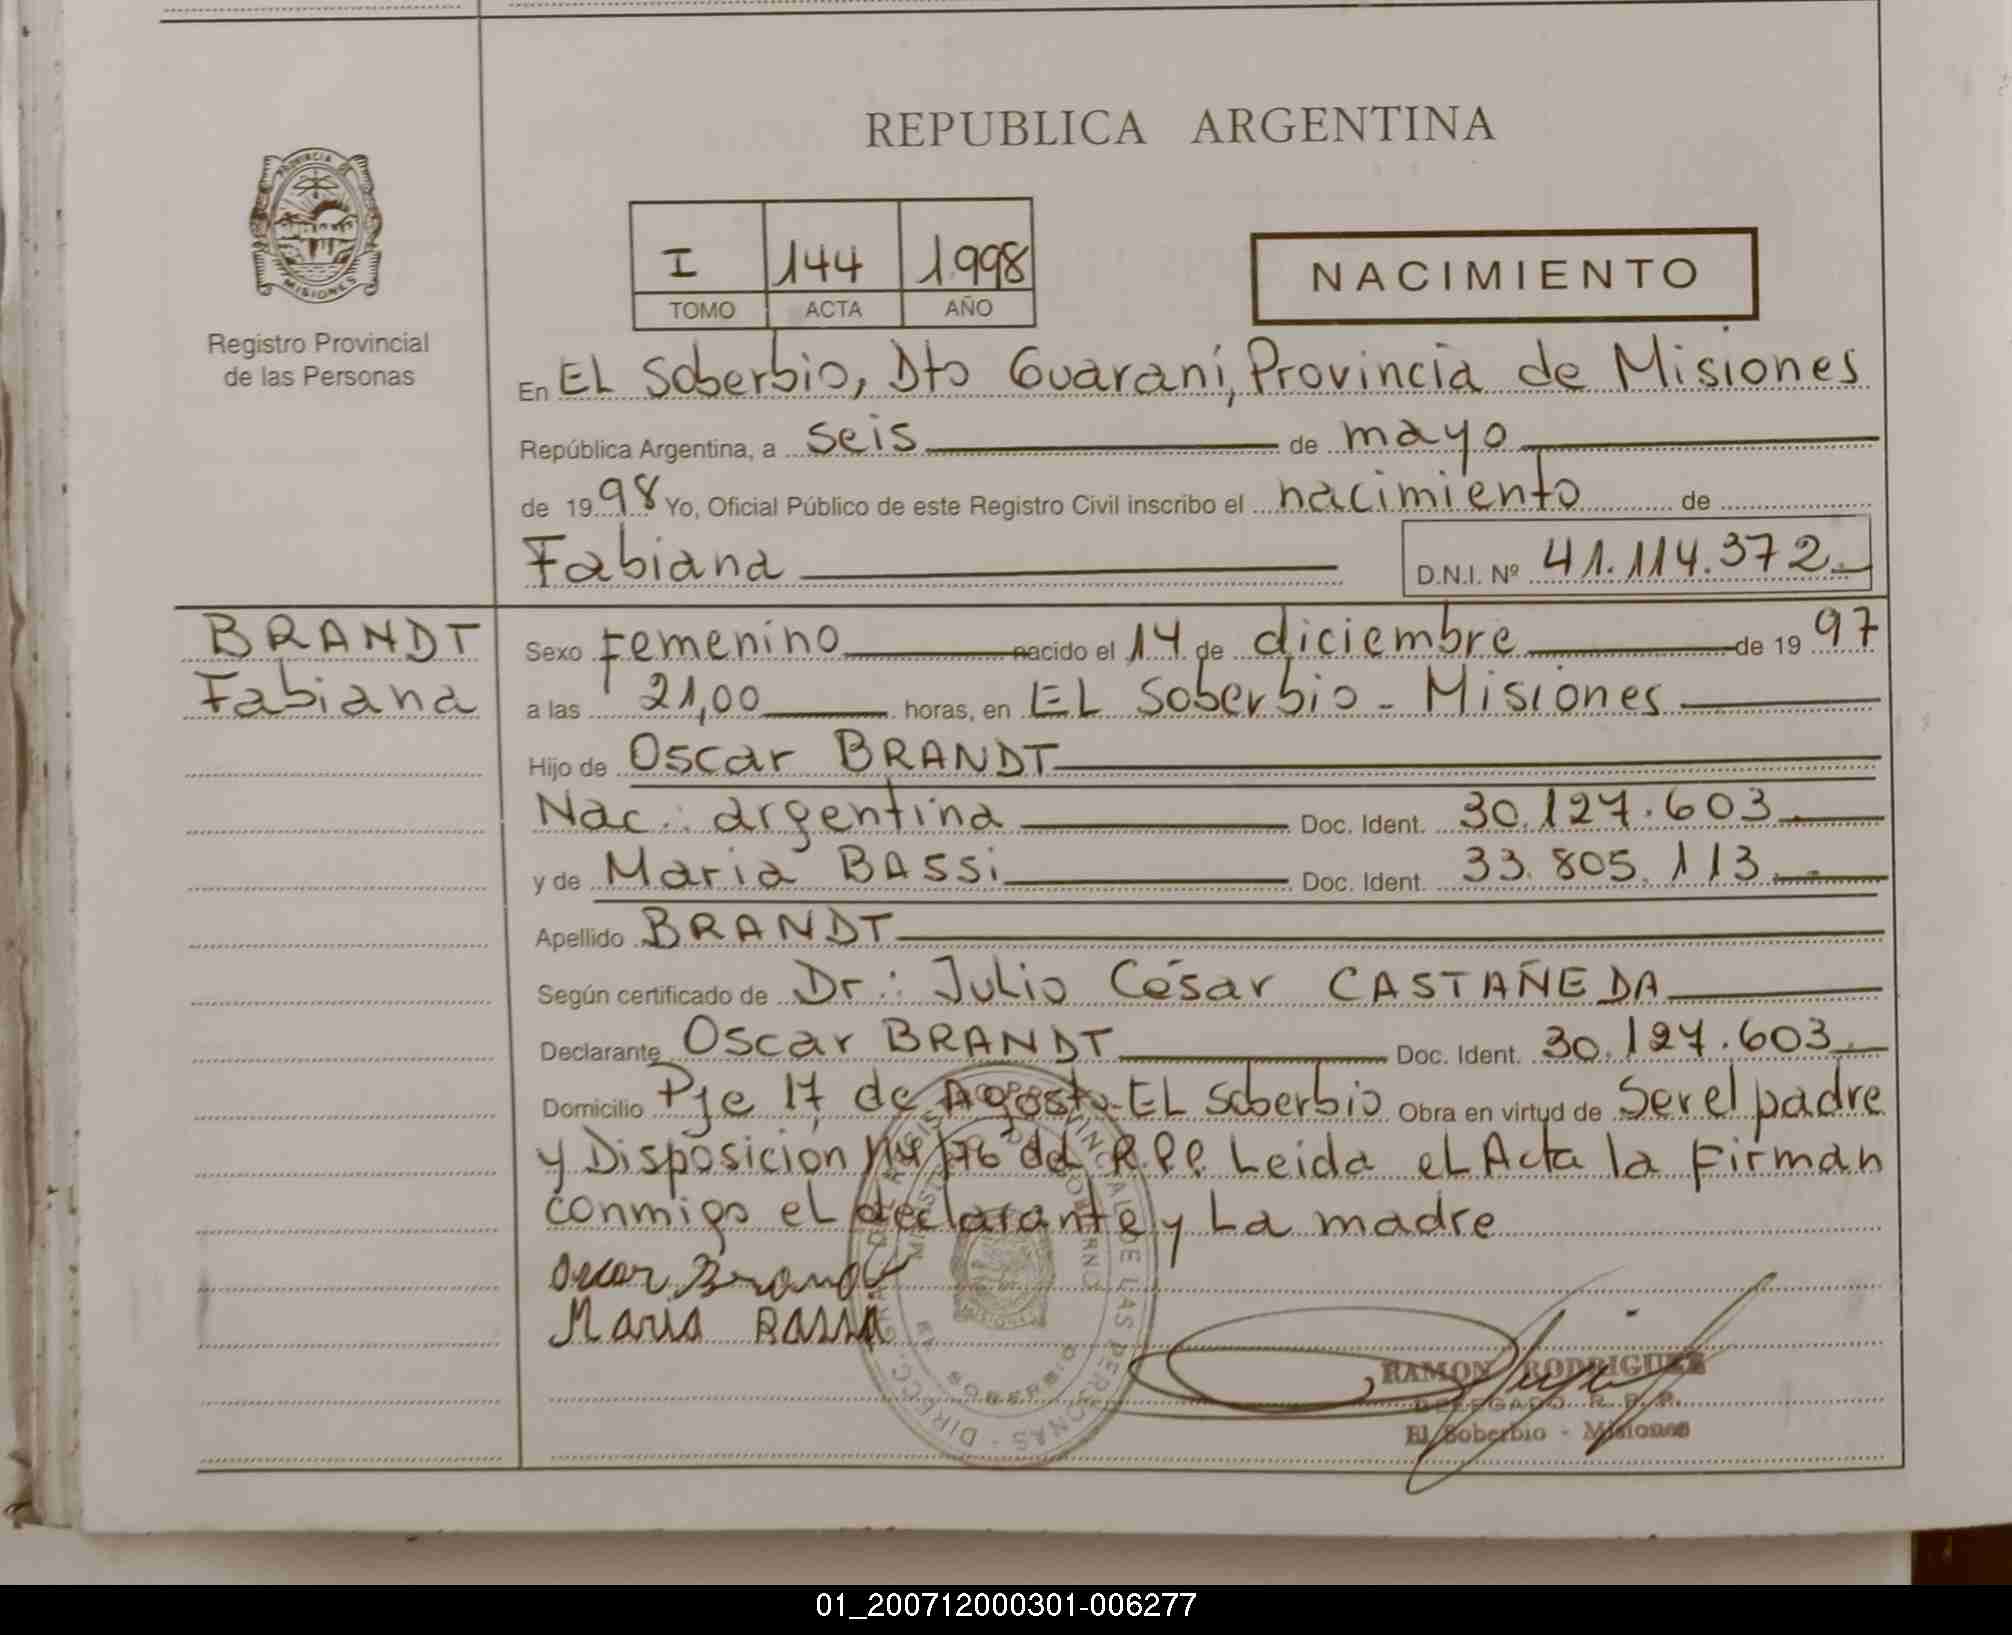 REPUBLICA ARGENTINA
PROVINCIA DE
MISIONES
Registro Provincial
de las Personas
I 144 1998
TOMO ACTA AÑO
NACIMIENTO
En EL Soberbio, Dto Guaraní, Provincia de Misiones
República Argentina, a seis de mayo
de 1998 Yo, Oficial Público de este Registro Civil inscribo el nacimiento de
Fabiana D.N.I. Nº 41.114.372.
BRANDT
Fabiana
Sexo Femenino nacido el 14 de diciembre de 1997
a las 21,00 horas, en EL Soberbio - Misiones
Hijo de Oscar BRANDT
Nac.: argentina Doc. Ident. 30.127.603
y de Maria BASSi Doc. Ident. 33.805.113
Apellido BRANDT
Según certificado de Dr.: Julio César CASTAÑEDA
Declarante Oscar BRANDT Doc. Ident. 30.127.603
Domicilio Pje 17 de Agosto-EL Soberbio Obra en virtud de Ser el padre
y Disposición 114/76 del R.P.P. Leida el Acta la Firman
conmigo eL declarante y La madre
Oscar Brandt
Maria Bassi
DIRECC. PROVINCIAL DE LAS PERSONAS
EL SOBERBIO
RAMON RODRIGUEZ
DELEGADO R. P. P.
El Soberbio - Misiones
01_200712000301-006277